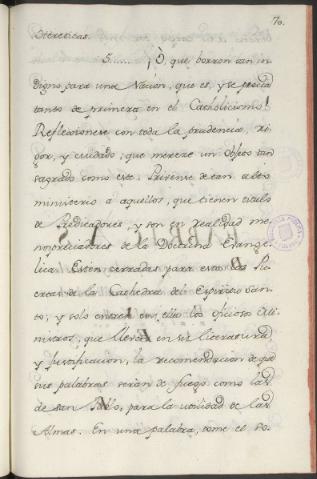 70.
Dieteticas.
5..... ¡O, que borron tan in
digno para una Nacion, que es, y se precia
tanto de primera en el Catholicismo!
Reflexionese con toda la prudencia, ri
gor, y cuidado, que merece un Objeto tan
sagrado como este. Privense de tan alto
ministerio á aquellos, que tienen titulo
de Predicadores, y son en realidad me
nospreciadores de la Doctrina Evange
lica. Esten cerradas para estos las Pu
ertas de la Cathedra del Espiritu San
to, y solo entren en ella los Oficiosos Mi
nistros, que lleven en su literatura
y justificacion, la recomendacion de que
sus palabras seran de fuego como las
de san Pablo, para la utilidad de las
Almas. En una palabra, tome el So-